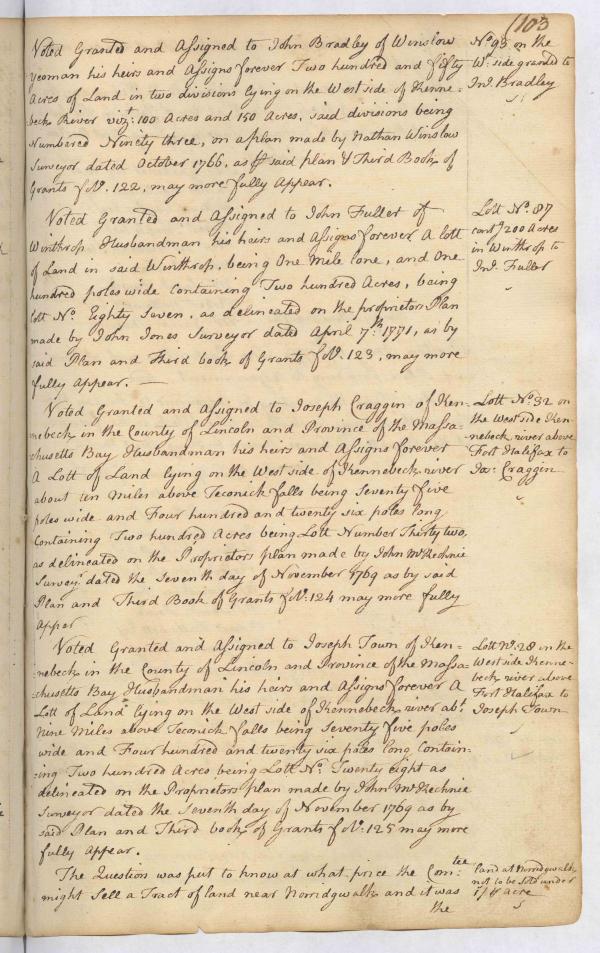 (103
Voted Granted and Assigned to John Bradley of Winslow
Yeoman his heirs and Assigns forever Two hundred and fifty
Acres of Land in two divisions lying on the West side of Kenne-
beck River vizt: 100 Acres and 150 Acres, said divisions being
Numbered Ninety three, on a plan made by Nathan Winslow
Surveyor dated October 1766, as ⅌ said plan & Third Book of
Grants fo. 122, may more fully Appear.
No 93 on the
W. side granted to
Jno. Bradley
Voted Granted and Assigned to John Fuller of
Winthrop Husbandman his heirs and Assigns forever A Lott
of Land in said Winthrop, being One Mile Long, and One
hundred poles wide Containing Two hundred Acres, being
Lott No. Eighty Seven, as delineated on the proprietors Plan
made by John Jones Surveyor dated April 7th. 1771, as by
said Plan and Third book of Grants fo. 123, may more
fully Appear. —
Lott No. 87
contg 200 Acres
in Winthrop to
Jno. Fuller
Voted Granted and Assigned to Joseph Craggin of Ken-
nebeck in the County of Lincoln and Province of the Massa-
chusetts Bay Husbandman his heirs and Assigns forever
A Lott of Land lying on the West side of Kennebeck river
about ten Miles above Teconick falls being Seventy five
poles wide and Four hundred and twenty six poles long
Containing Two hundred Acres being Lott Number Thirty two,
as delineated on the Proprietors plan made by John McKechnie
Surveyr. dated the Seventh day of November 1769 as by said
Plan and Third Book of Grants fo. 124 may more fully
Apper
Lott No. 32 on
the West side Ken-
nebeck river above
Fort Halifax to
Jos: Craggin
Voted Granted and Assigned to Joseph Town of Ken-
nebeck in the County of Lincoln and Province of the Massa-
chusetts Bay Husbandman his heirs and Assigns forever A
Lott of Land lying on the West side of Kennebeck river abt.
Nine Miles above Teconick falls being Seventy five poles
wide and Four hundred and twenty six poles long Contain-
ing Two hundred Acres being Lott No. Twenty eight as
delineated on the Proprietors plan made by John McKechnie
Surveyor dated the Seventh day of November 1769 as by
said Plan and Third book of Grants fo. 125 may more
fully Appear.
Lott No. 28 in the
West side Kenne-
beck river above
Fort Halifax to
Joseph Town
The Question was put to know at what price the Comtee
might Sell a Tract of land near Norridgwalk and it was
the
land at Norridgwalk
not to be sold under
Acre